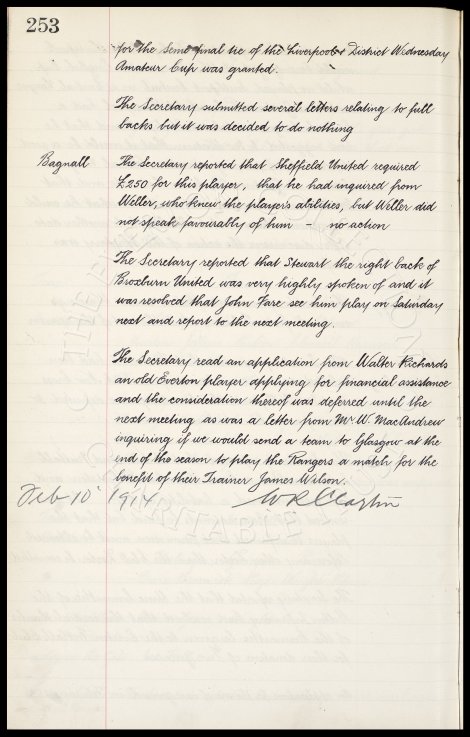 253
for the Semi final tie of the Liverpool & District Wednesday
Amateur Cup was granted.
The Secretary submitted several letters relating to full
backs but it was decided to do nothing
Bagnall
The Secretary reported that Sheffield United required
£250 for this player, that he had inquired from
Weller, who knew the player's abilities, but Weller did
not speak favourably of him - no action
The Secretary reported that Stewart the right back of
Broxburn United was very highly spoken of and it
was resolved that John Fare see him play on Saturday
next and report to the next meeting.
The Secretary read an application from Walter Richards
an old Everton player applying for financial assistance
and the consideration thereof was deferred until the
next meeting as was a letter from Mr. W. MacAndrew
inquiring if we would send a team to Glasgow at the
end of the season to play the Rangers a match for the
benefit of their Trainer James Wilson.
Feb 10 1914 W R Clayton